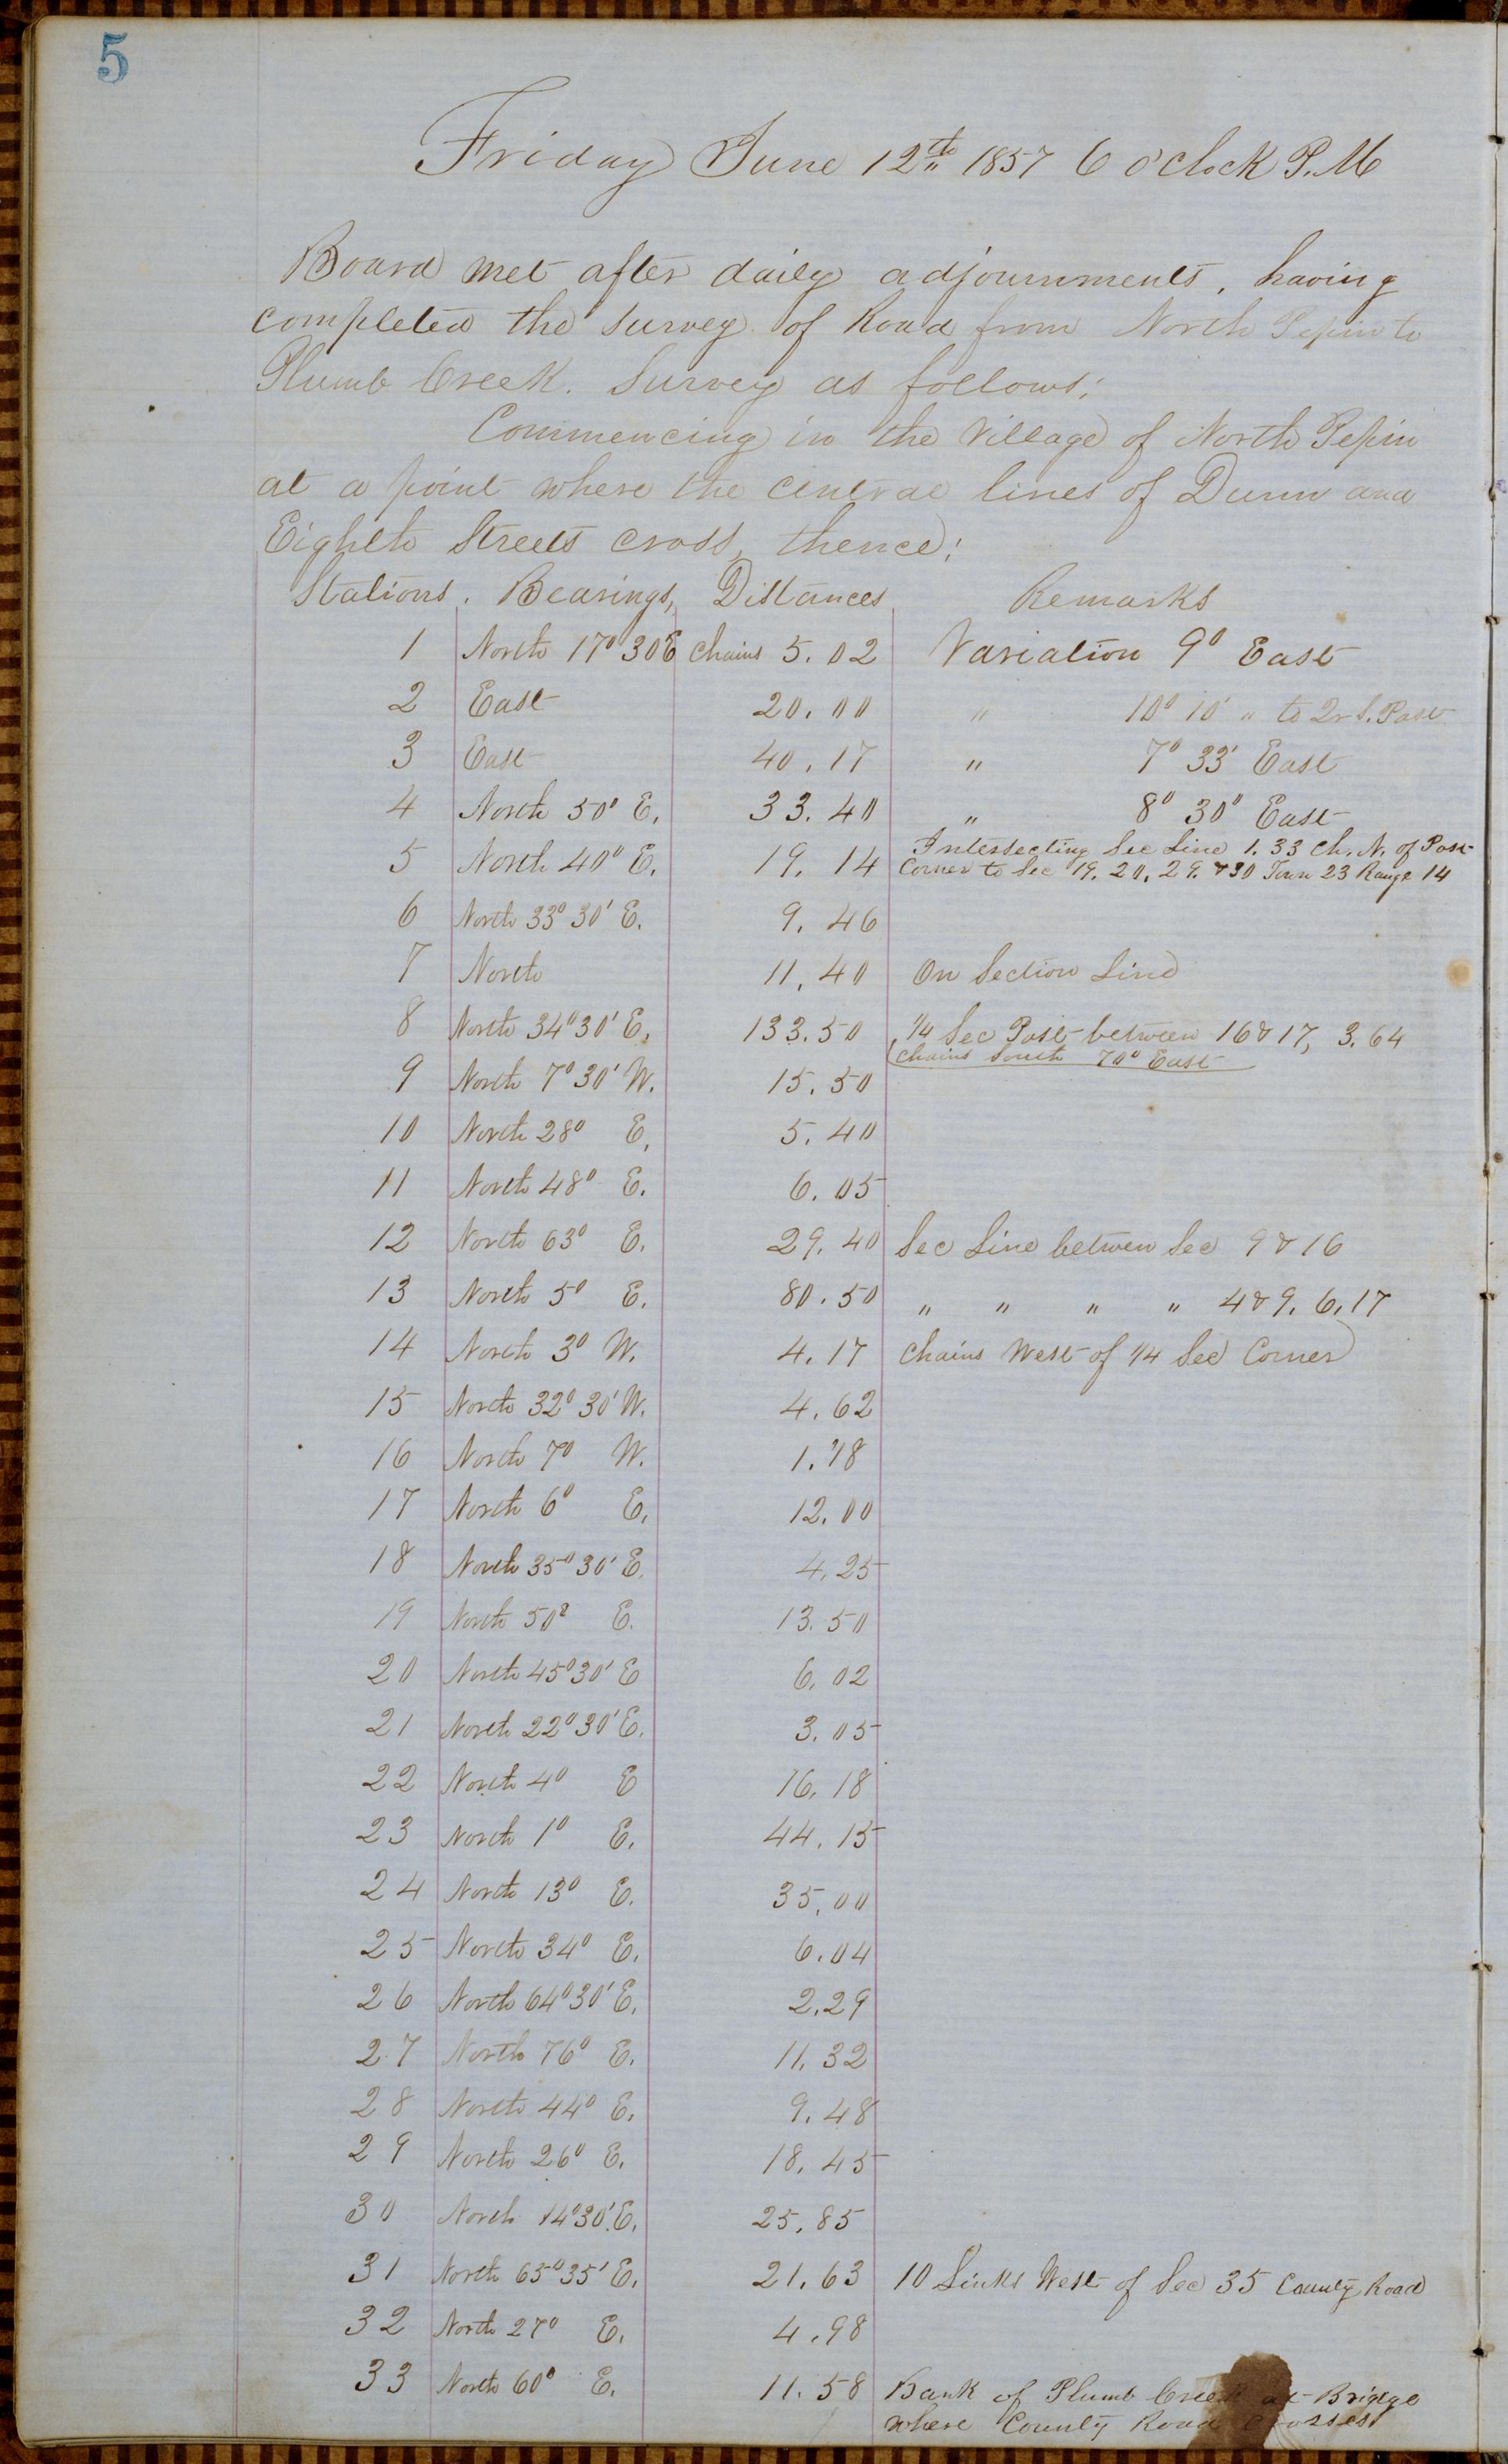 5
Friday June 12th 1857 6 o'clock P.M
Board met after daily adjournments, having
completed the survey of Road from North Pepin to
Plumb Creek. Survey as follows:
Commencing in the Village of North Pepin
at a point where the central lines of Dunn and
Eighth Streets cross, thence:
Stations. Bearings, Distances Remarks
1 North 17° 30 E chains 5.02 Variation 9° East
2 East 20.00 " 10° 10' " to Qr S. Post
3 East 40.17 " 7° 33' East
4 North 50° E. 33.40 " 8° 30" East
5 North 40° E. 19.14 Intersecting Sec Line 1.33 Ch. N. of Post
Corner to Sec 19. 20. 29. & 30 Town 23 Range 14
6 North 33° 30' E. 9.46
7 North 11.40 On Section Line
8 North 34° 30' E. 133.50 1/4 Sec Post between 16 & 17, 3.64
chains South 70° East
9 North 7° 30' W. 15.50
10 North 28° E. 5.40
11 North 48° E. 6.05
12 North 63° E. 29.40 Sec Line betwen Sec 9 & 16
13 North 5° E. 80.50 " " " " 4 & 9. 6.17
14 North 3° W. 4.17 Chains West of 1/4 Sec Corner
15 North 32° 30' W. 4.62
16 North 7° W.
17 North 6° E. 12.00
18 North 35° 30' E. 4.25
19 North 50° E. 13.50
20 North 45° 30' E 6.02
21 North 22° 30' E. 3.05
22 North 4° E 16.18
23 North 1° E. 44.15
24 North 13° E. 35.00
25 North 34° E. 6.04
26 North 64° 30' E. 2.29
27 North 76° E. 11.32
28 North 44° E. 9.48
29 North 26° E. 18.45
30 North 14° 30' E. 25.85
31 North 65° 35' E. 21.63 10 Links West of Sec 35 County Road
32 North 27° E. 4.98
33 North 60° E. 11.58 Bank of Plumb Creek at Bridge
where County Road crosses